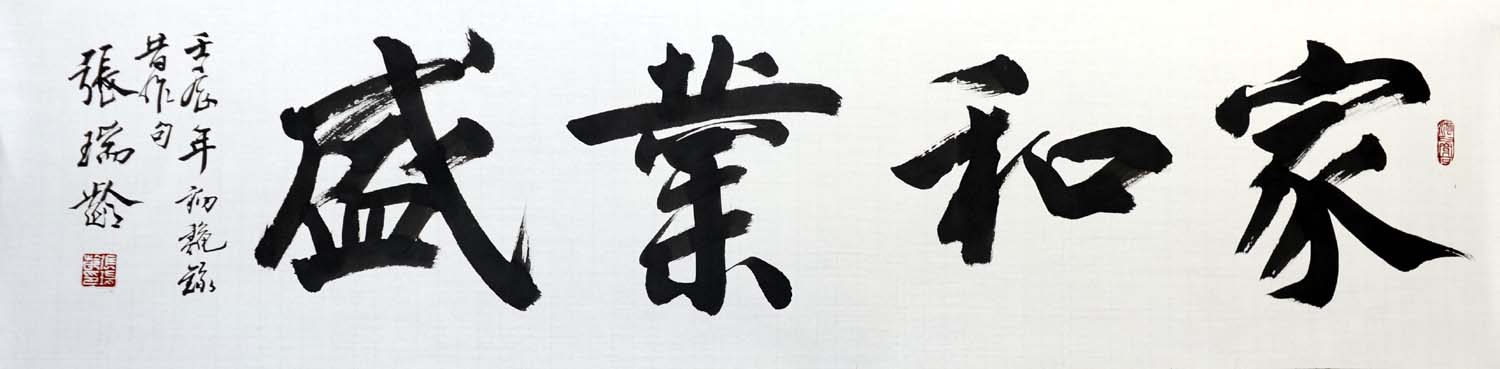 家和業盛
壬辰年初
昔作句
張瑞齡